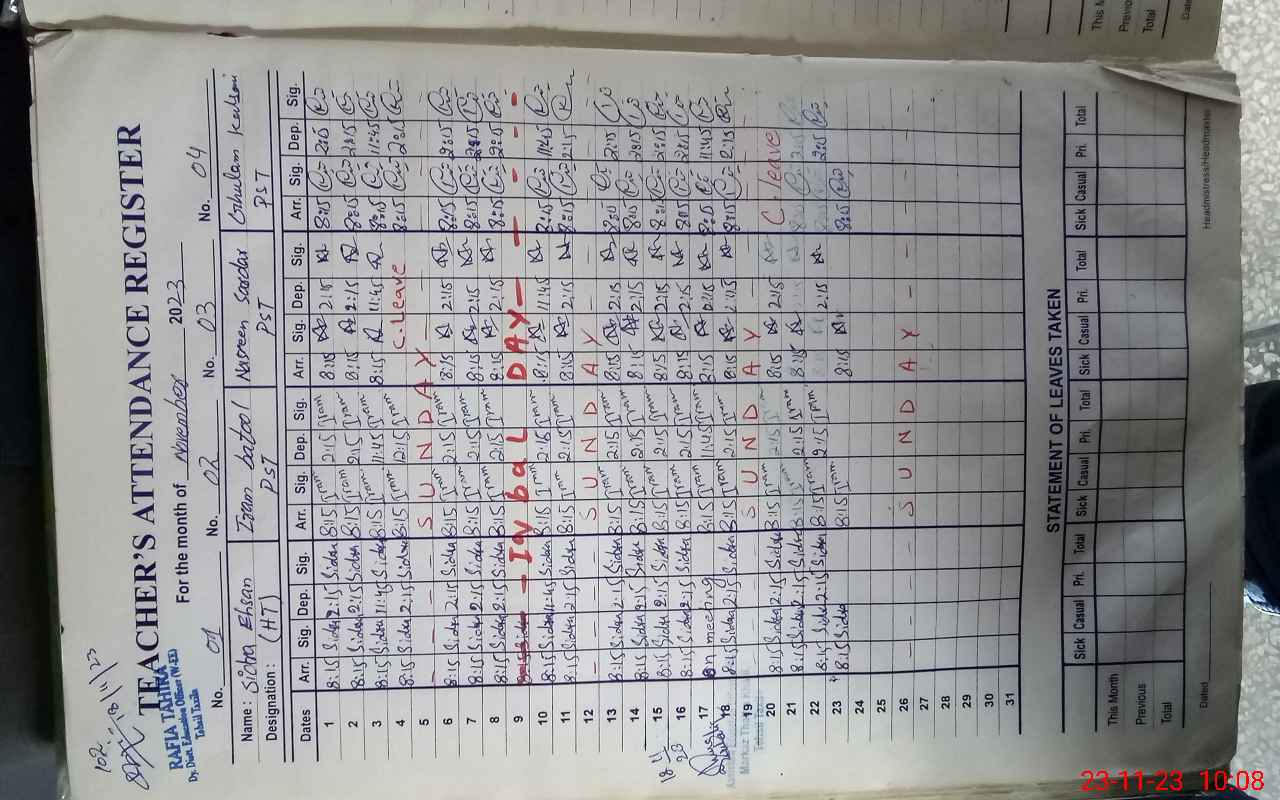 102.
18/11/23
TEACHER'S ATTENDANCE REGISTER
RAFIA TAHIRA
Dy. Distt. Education Officer (W-EE)
Tehsil Taxila
For the month of November 2023
No. 01 No. 02 No. 03 No. 04
Name: Sidra Ehsan Iram batool Nasreen Saardar Ghulam Kulsom
Designation: (HT) PST PST PST
Dates Arr. Sig. Dep. Sig. Arr. Sig. Dep. Sig. Arr. Sig. Dep. Sig. Arr. Sig. Dep. Sig.
1 8:15 Sidra 2:15 Sidra 8:15 Iram 2:15 Iram 8:15 2:15 8:15 2:15
2 8:15 Sidra 2:15 Sidra 8:15 Iram 2:15 Iram 8:15 2:15 8:15 2:15
3 8:15 Sidra 11:45 Sidra 8:15 Iram 11:45 Iram 8:15 11:45 8:15 11:45
4 8:15 Sidra 2:15 Sidra 8:15 Iram 12:15 Iram C. Leave 8:15 2:15
5 – – – – SUNDAY – – – –
6 8:15 Sidra 2:15 Sidra 8:15 Iram 2:15 Iram 8:15 2:15 8:15 2:15
7 8:15 Sidra 2:15 Sidra 8:15 Iram 2:15 Iram 8:15 2:15 8:15 2:15
8 8:15 Sidra 2:15 Sidra 8:15 Iram 2:15 Iram 8:15 2:15 8:15 2:15
9 – Iqbal DAY – – – –
10 8:15 Sidra 11:45 Sidra 8:15 Iram 2:15 Iram 8:15 11:45 8:15 11:45
11 8:15 Sidra 2:15 Sidra 8:15 Iram 2:15 Iram 8:15 2:15 8:15 2:15
12 – – – – SUNDAY – – – –
13 8:15 Sidra 2:15 Sidra 8:15 Iram 2:15 Iram 8:15 2:15 2:15
14 8:15 Sidra 2:15 Sidra 8:15 Iram 2:15 Iram 8:15 2:15 8:15 2:15
15 8:15 Sidra 2:15 Sidra 8:15 Iram 2:15 Iram 8:15 2:15 8:15 2:15
16 8:15 Sidra 2:15 Sidra 8:15 Iram 2:15 Iram 8:15 2:15 8:15 2:15
17 On meeting 8:15 Iram 11:45 Iram 8:15 8:15 11:45
18 8:15 Sidra 2:15 Sidra 8:15 Iram 2:15 Iram 8:15 2:15 8:15 2:15
19 – – – – SUNDAY – – – –
20 8:15 Sidra 2:15 Sidra 8:15 Iram 2:15 Iram 8:15 2:15 C. leave
21 8:15 Sidra 2:15 Sidra 8:15 Iram 2:15 Iram 8:15
22 8:15 Sidra 2:15 Sidra 8:15 Iram 2:15 Iram 2:15 2:15
23 8:15 Sidra 8:15 Iram 8:15 8:15
24
25
26 – – – – SUNDAY – – – –
27
28
29
30
31
18/11/23
STATEMENT OF LEAVES TAKEN
Sick Casual Pri. Total Sick Casual Pri. Total Sick Casual Pri. Total Sick Casual Pri. Total
This Month
Previous
Total
Dated
Headmistress/Headmaster
This M
Previo
Total
Date
23-11-23 10:08